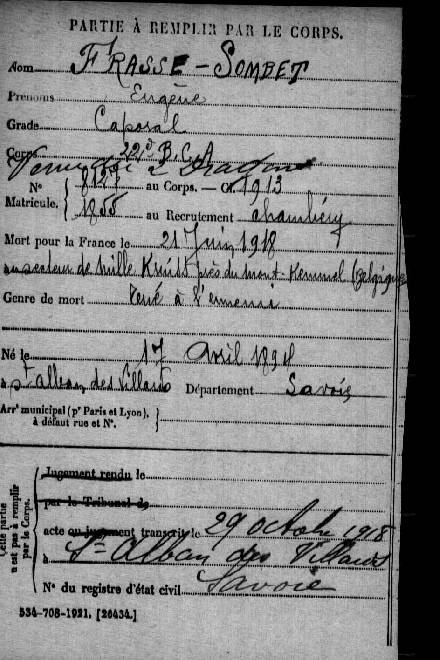 PARTIE À REMPLIR PAR LE CORPS.
Nom FRASSE-SOMBET
Prénoms Eugène
Grade Caporal
Corps 22e B.C.A
N° au Corps. — Cl. 1913
Matricule. 1855 au Recrutement Chambéry
Mort pour la France le 21 Juin 1918
au secteur de mille Kruis près du mont-Kemmel (Belgique
Genre de mort Tué à l'ennemi
Né le 17 Avril 1894
à St alban des Villards Département Savoie
Arrt municipal (pr Paris et Lyon),
à défaut rue et N°.
Cette partie
n'est pas à remplir
par le Corps.
Jugement rendu le
par le Tribunal de
acte ou jugement transcrit le 29 octobre 1918
à St-Alban des Villards
Savoie
N° du registre d'état civil
534-708-1921. [26434.]